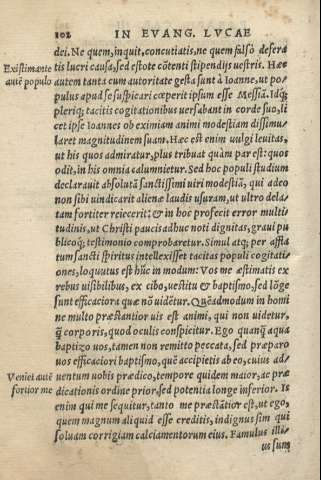 102 IN EVANG. LVCAE
dei. Ne quem, inquit, concutiatis, ne quem falsò defera
tis lucri causa, sed estote cõtenti stipendijs uestris. Hæc
Existimante
autem tanta cum autoritate gesta sunt à Ioanne, ut po⸗
autẽ populo
pulus apud se suspicari cœperit ipsum esse Messiã. Idq;
pleriq; tacitis cogitationibus uersabant in corde suo, li
cet ipse Ioannes ob eximiam animi modestiam dissimu⸗
laret magnitudinem suam. Hæc est enim uulgi leuitas,
ut his quos admiratur, plus tribuat quàm par est: quos
odit, in his omnia calumnietur. Sed hoc populi studium
declarauit absolutã sanctissimi uiri modestiã, qui adeo
non sibi uindicarit alienæ laudis usuram, ut ultro dela⸗
tam fortiter reiecerit: & in hoc profecit error multi⸗
tudinis, ut Christi paucis adhuc noti dignitas, graui pu
blicoq; testimonio comprobaretur. Simul atq; per affla
tum sancti spiritus intellexisset tacitas populi cogitati⸗
ones, loquutus est hũc in modum: Vos me æstimatis ex
rebus uisibilibus, ex cibo, uestitu & baptismo, sed lõge
sunt efficaciora quæ nõ uidẽtur. Quẽadmodum in homi
ne multo præstantior uis est animi, qui non uidetur,
q̃ corporis, quod oculis conspicitur. Ego quanq̃ aqua
baptizo uos, tamen non remitto peccata, sed præparo
uos efficaciori baptismo, quẽ accipietis ab eo, cuius ad⸗
Veniet autẽ
uentum uobis prædico, tempore quidem maior, ac præ
fortior me
dicationis ordine prior, sed potentia longe inferior. Is
enim qui me sequitur, tanto me præstãtior est, ut ego,
quem magnum aliquid esse creditis, indignus sim qui
soluam corrigiam calciamentorum eius. Famulus illi⸗
us sum